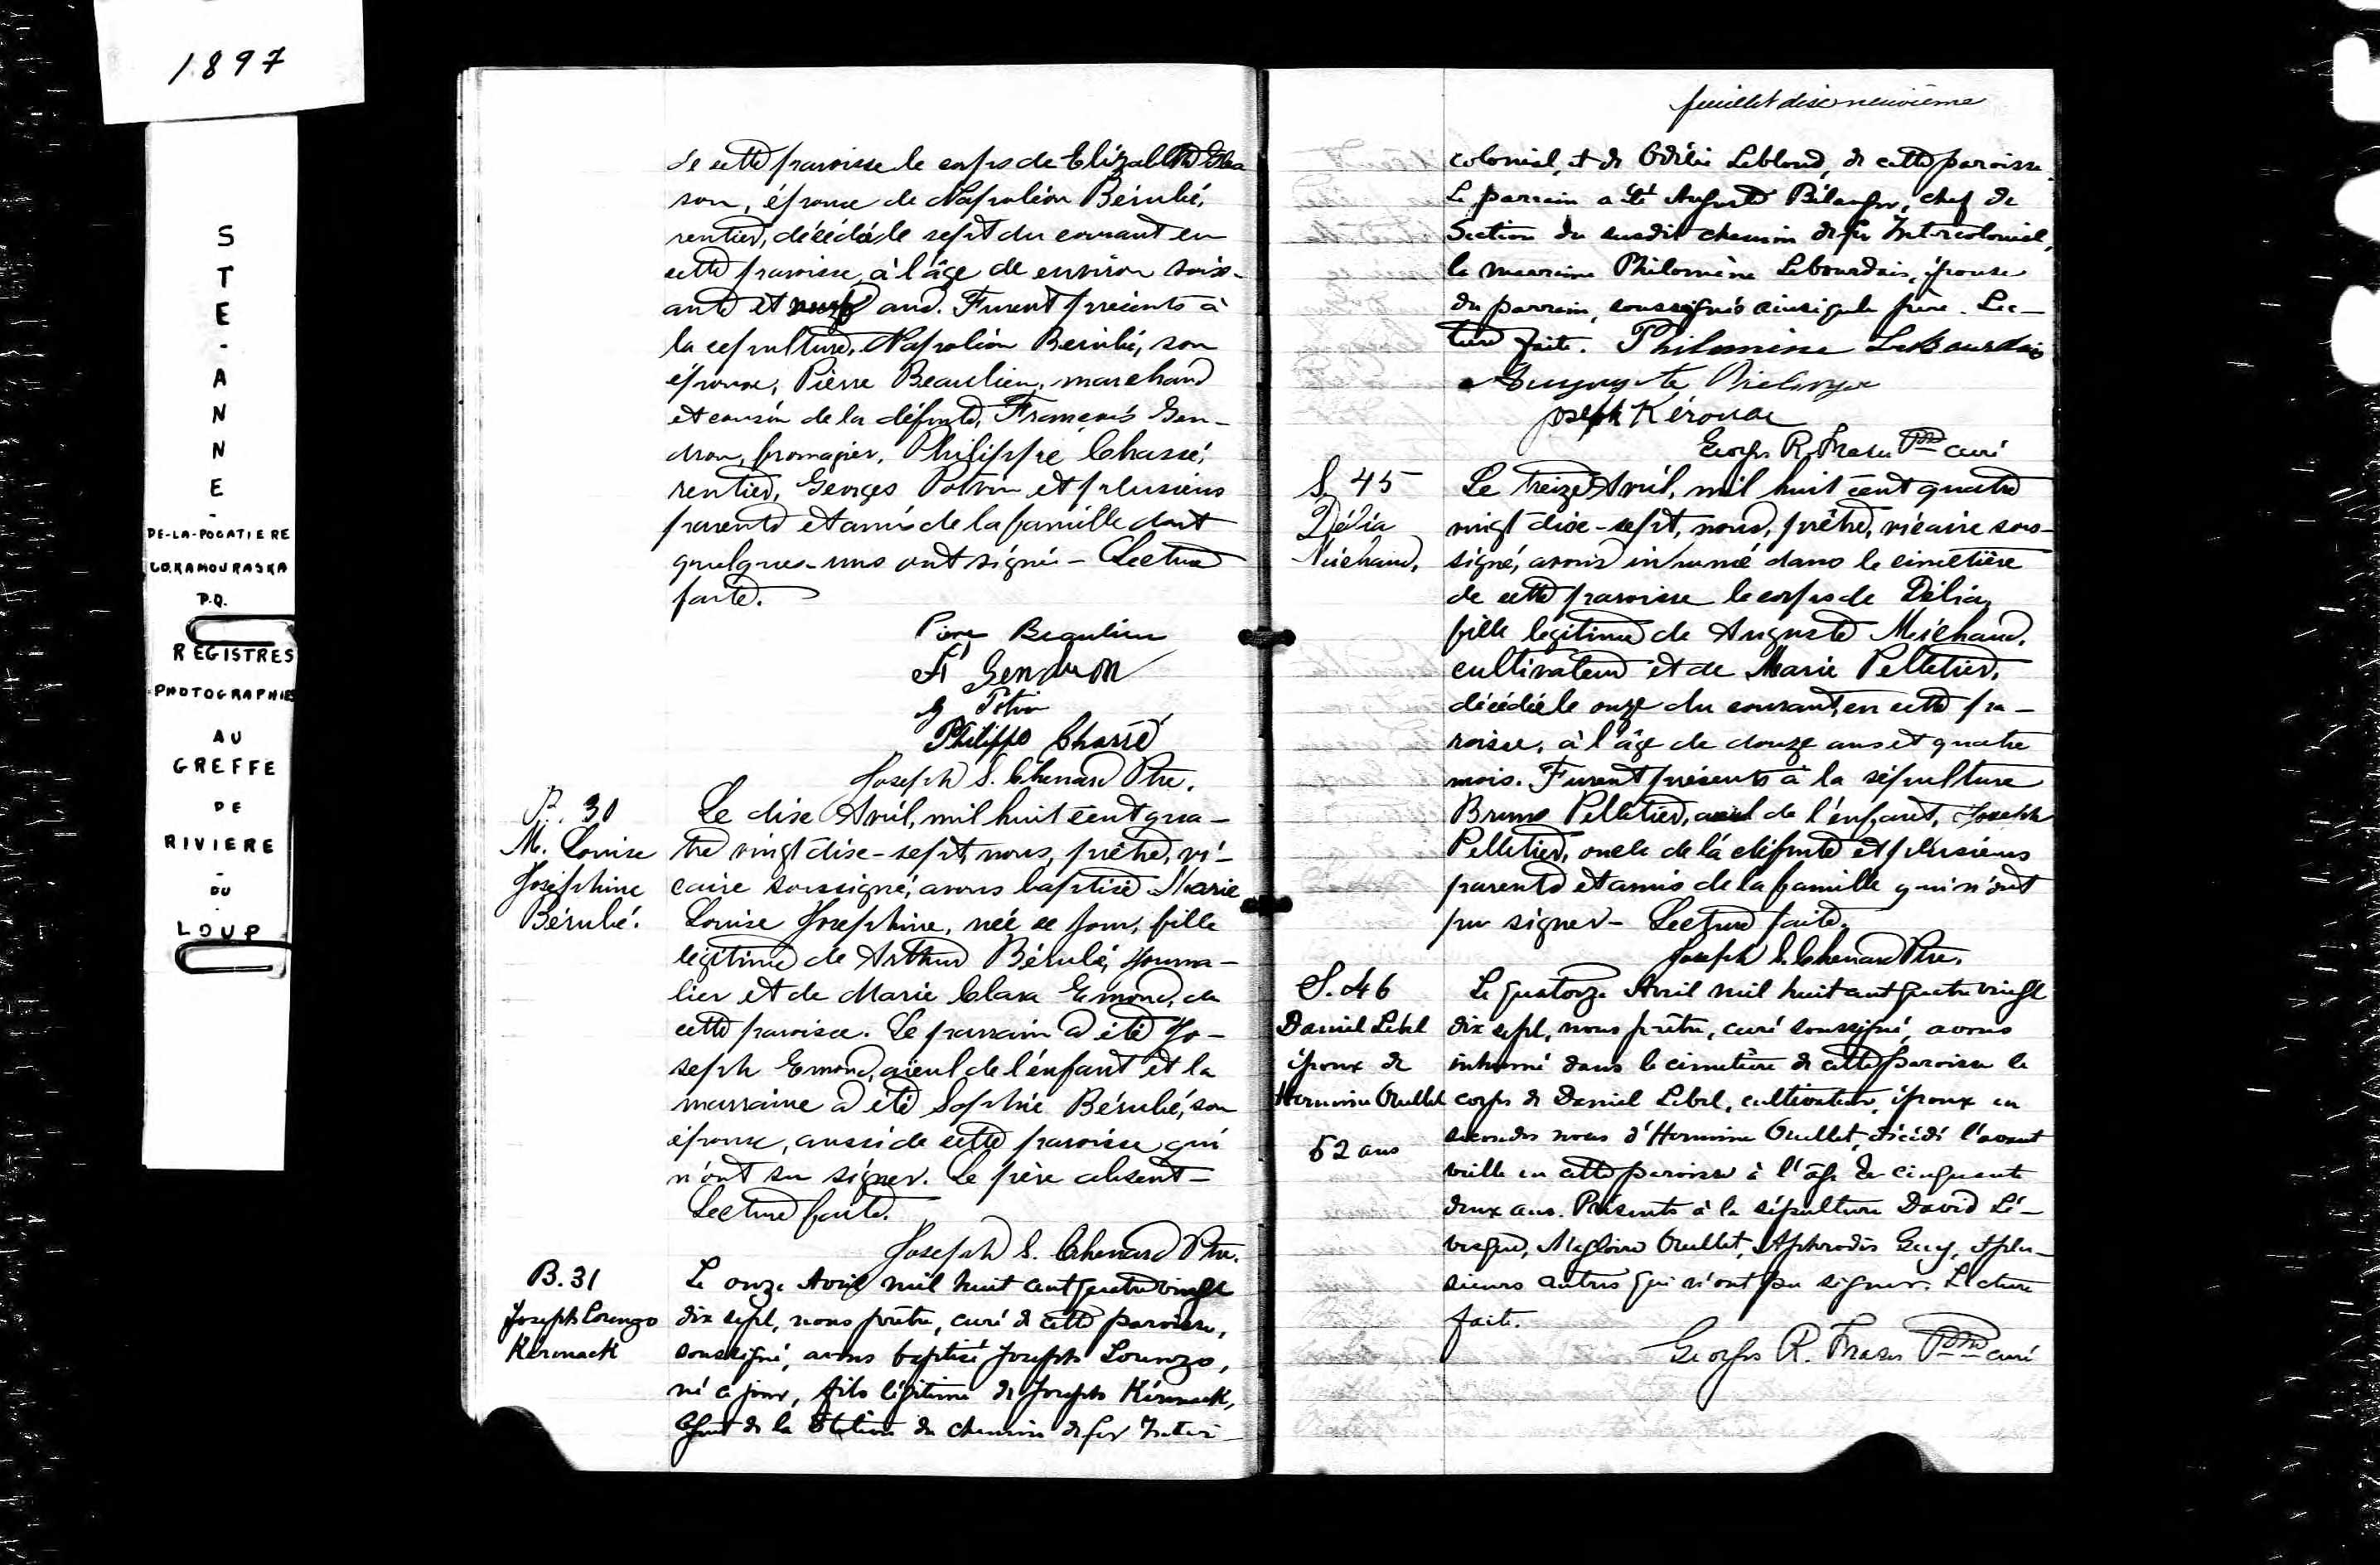 1897
STE-ANNE-
DE-LA-POCATIERE
CO.KAMOURASKA
P.Q.
REGISTRES
PHOTOGRAPHIE
AU
GREFFE
DE
RIVIERE
-
DU
-
LOUP
de cette paroisse le corps de Elizabeth
son, épouse de Napoléon Bérubé,
rentier, décédée le sept du courant en
cette paroisse, à l'âge de environ soix-
ante et neuf ans. Furent présents à
la sépulture, Napoléon Bérubé, son
époux, Pierre Beaulieu, marchand
et cousin de la défunte, François Gen-
dron, fromagier, Philippe Chassé,
rentier, Georges Potvin et plusieurs
parents et amis de la famille dont
quelques-uns ont signé - Lecture
faite.
Pierre Beaulieu
F Gendron
G Potvin
Philippe Chassé
Joseph S. Chenard Ptre.
B. 30
M. Louise
Joséphine
Bérubé.
Le dix Avril, mil huit cent qua-
tre vingt dix-sept, nous, prêtre, vi-
caire soussigné, avons baptisé Marie
Louise Joséphine, née ce jour, fille
légitime de Arthur Bérubé, journa-
lier et de Marie Clara Emond, de
cette paroisse. Le parrain a été Jo-
seph Emond, aieul de l'enfant et la
marraine a été Sophie Bérubé, son
épouse, aussi de cette paroisse qui
n'ont su signer. Le père absent -
Lecture faite.
Joseph S. Chenard Ptre.
B. 31
Joseph Lorenzo
Kérouack
Le onze Avril mil huit cent quatre vingt
dix sept, nous prêtre, curé de cette paroisse,
soussigné, avons baptisé Joseph Lorenzo,
né ce jour, fils légitime de Joseph Kérouack,
Agent de la Station du chemin de fer Inter-
feuillet dix neuvième
colonial, et de Odélie Leblond, de cette paroisse.
Le parrain a été Auguste Bélanger, chef de
Section du susdit chemin de fer Intercolonial,
la marraine Philomène Lebourdais, épouse
du parrain, soussignés ainsi que le père. Lec-
ture faite. Philomène Lebourdais
Joseph Kérouac
Georges R. Fraser Ptre curé
S. 45
Délia
Michaud.
Le treize Avril, mil huit cent quatre
vingt dix-sept, nous, prêtre, vicaire sous-
signé, avons inhumé dans le cimetière
de cette paroisse le corps de Délia,
fille légitime de Auguste Michaud,
cultivateur et de Marie Pelletier,
décédée le onze du courant, en cette pa-
roisse, à l'âge de douze ans et quatre
mois. Furent présents à la sépulture
Bruno Pelletier, aieul de l'enfant, Joseph
Pelletier, oncle de la défunte et plusieurs
parents et amis de la famille qui n'ont
pu signer - Lecture faite.
Joseph S. Chenard Ptre.
S. 46
Daniel Lebel
époux de
Hermine Ouellet
52 ans
Le quatorze Avril mil huit cent quatre vingt
dix sept, nous prêtre, curé soussigné, avons
inhumé dans le cimetière de cette paroisse le
corps de Daniel Lebel, cultivateur, époux en
secondes noces d'Hermine Ouellet, décédé l'avant
veille en cette paroisse à l'âge de cinquante
deux ans. Présents à la sépulture David Lé-
vesque, Magloire Ouellet, Aphrodis Guy, et plu-
sieurs autres qui n'ont pu signer. Lecture
faite.
Georges R. Fraser Ptre curé